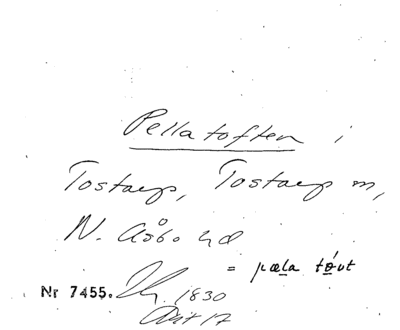 Pellatoften i
Tostarp, Tostarp m,
N. Åsbo hd
= pæla tóut
Nr 7455. 1830
Akt 17